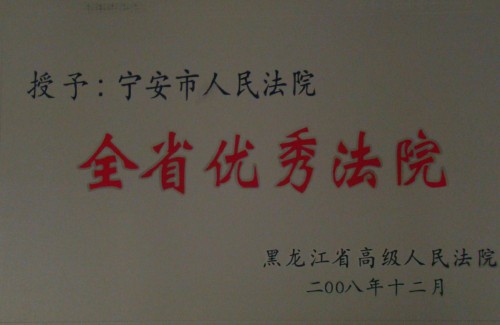 授予：宁安市人民法院
全省优秀法院
黑龙江省高级人民法院
二00八年十二月